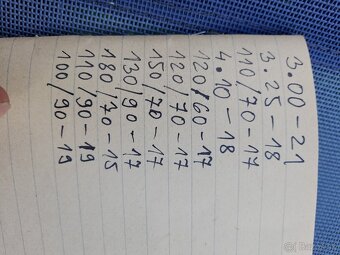 3.00-21
3.25-18
110/70-17
4.10-18
120/60-17
120/70-17
150/70-17
130/90-17
180/70-15
110/90-19
100/90-19